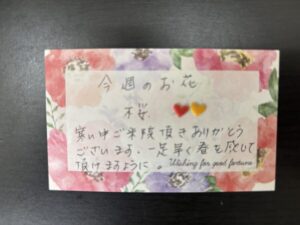 今週のお花
桜
寒い中ご来院頂きありがとう
ございます。一足早く春を感じて
頂けますように。
Wishing for good fortune